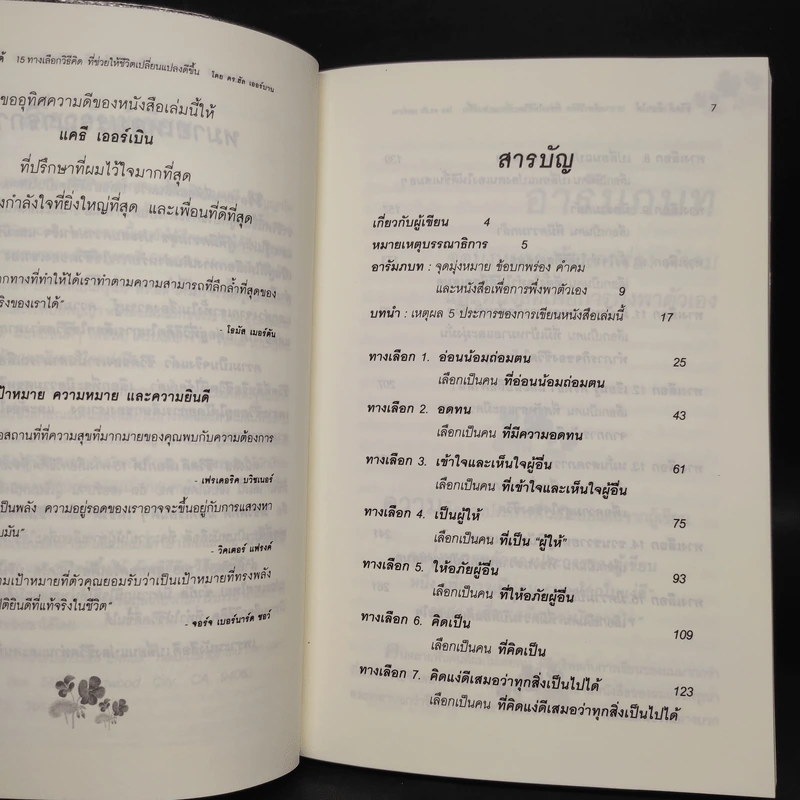 15 ทางเลือกวิธีคิด ที่ช่วยให้ชีวิตเปลี่ยนแปลงดีขึ้น โดย ดร.ฮัล เออร์บาน
ขออุทิศความดีของหนังสือเล่มนี้ให้
แคธี เออร์เบิน
ที่ปรึกษาที่ผมไว้ใจมากที่สุด
งกำลังใจที่ยิ่งใหญ่ที่สุด และเพื่อนที่ดีที่สุด
อกทางที่ทำให้ได้เราทำตามความสามารถที่ลึกล้ำที่สุดของ
ริงของเราได้"
- โธมัส เมอร์ตัน
เป้าหมาย ความหมาย และความยินดี
อสถานที่ที่ความสุขที่มากมายของคุณพบกับความต้องการ
- เฟรเดอริค บวิชเนอร์
เป็นพลัง ความอยู่รอดของเราอาจจะขึ้นอยู่กับการแสวงหา
บมัน"
- วิคเตอร์ แฟรงค์
ามเป้าหมายที่ตัวคุณยอมรับว่าเป็นเป้าหมายที่ทรงพลัง
ติยินดีที่แท้จริงในชีวิต"
- จอร์จ เบอร์นาร์ด ชอว์
7
สารบัญ
เกี่ยวกับผู้เขียน 4
หมายเหตุบรรณาธิการ 5
อารัมภบท : จุดมุ่งหมาย ข้อบกพร่อง คำคม
และหนังสือเพื่อการพึ่งพาตัวเอง 9
บทนำ : เหตุผล 5 ประการของการเขียนหนังสือเล่มนี้ 17
ทางเลือก 1. อ่อนน้อมถ่อมตน 25
เลือกเป็นคน ที่อ่อนน้อมถ่อมตน
ทางเลือก 2. อดทน 43
เลือกเป็นคน ที่มีความอดทน
ทางเลือก 3. เข้าใจและเห็นใจผู้อื่น 61
เลือกเป็นคน ที่เข้าใจและเห็นใจผู้อื่น
ทางเลือก 4. เป็นผู้ให้ 75
เลือกเป็นคน ที่เป็น "ผู้ให้"
ทางเลือก 5. ให้อภัยผู้อื่น 93
เลือกเป็นคน ที่ให้อภัยผู้อื่น
ทางเลือก 6. คิดเป็น 109
เลือกเป็นคน ที่คิดเป็น
ทางเลือก 7. คิดแง่ดีเสมอว่าทุกสิ่งเป็นไปได้ 123
เลือกเป็นคน ที่คิดแง่ดีเสมอว่าทุกสิ่งเป็นไปได้